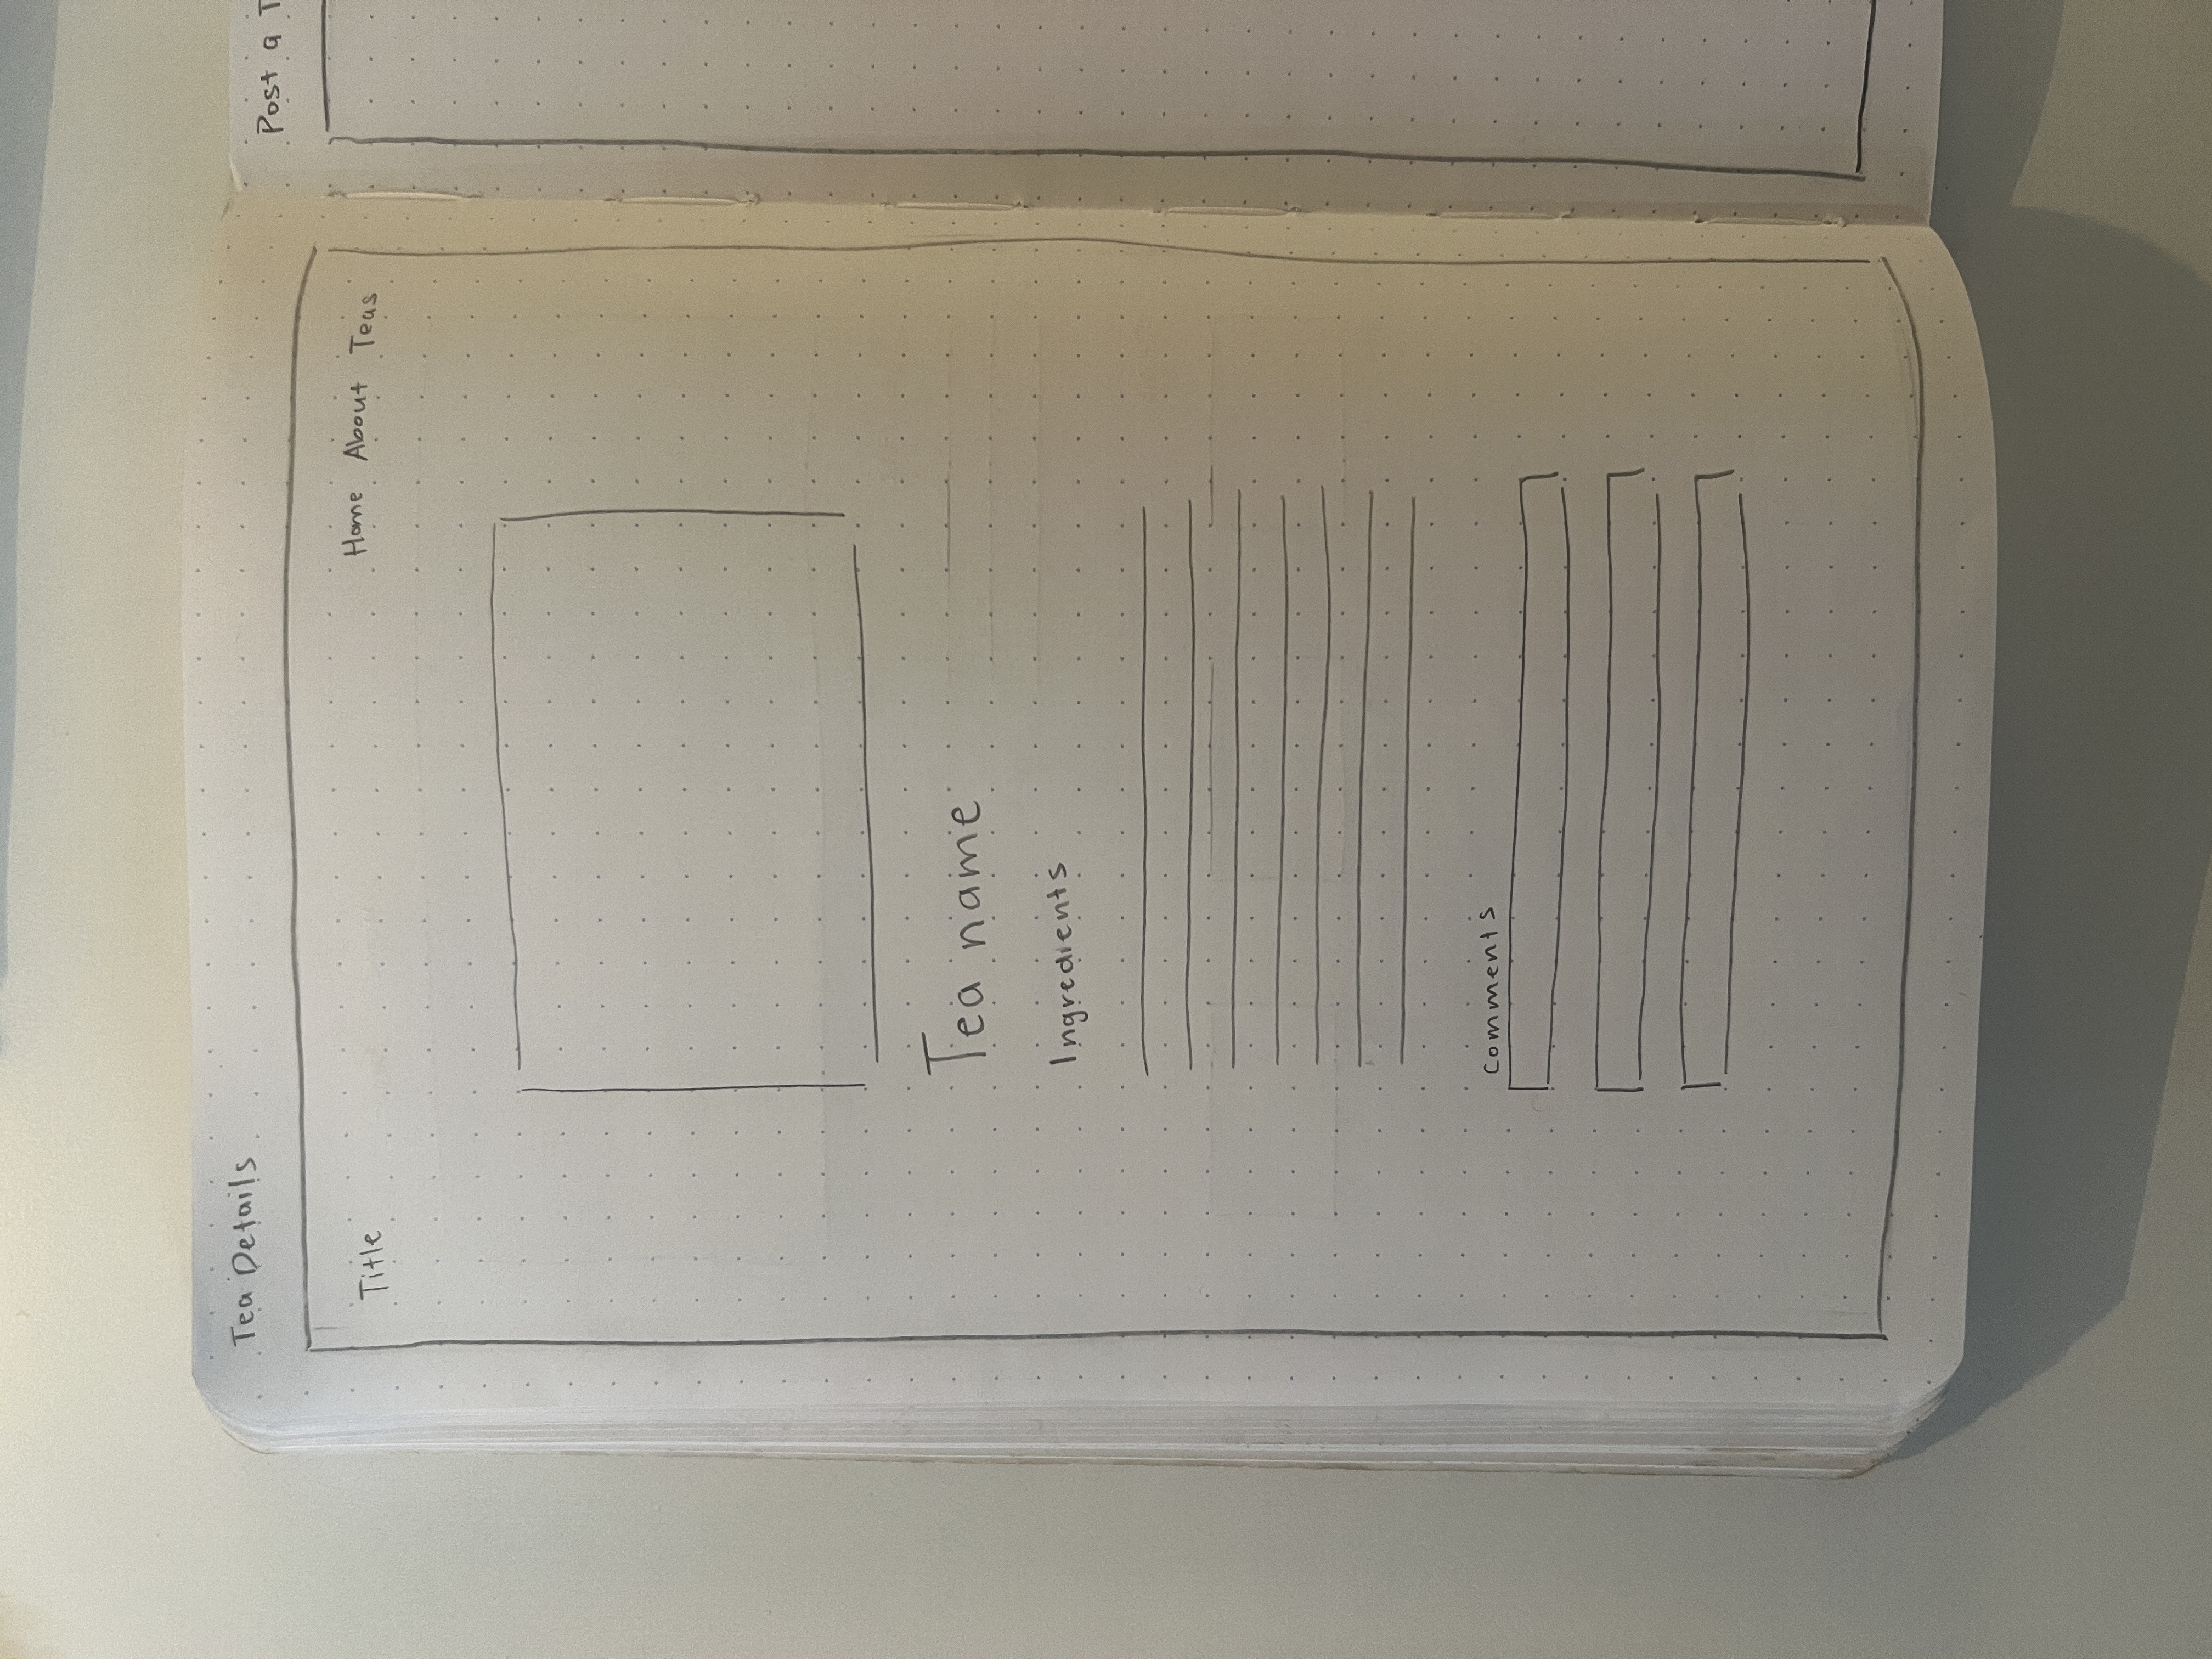 Tea Details
Title
Home About Teas
Tea name
Ingredients
Comments
Post a